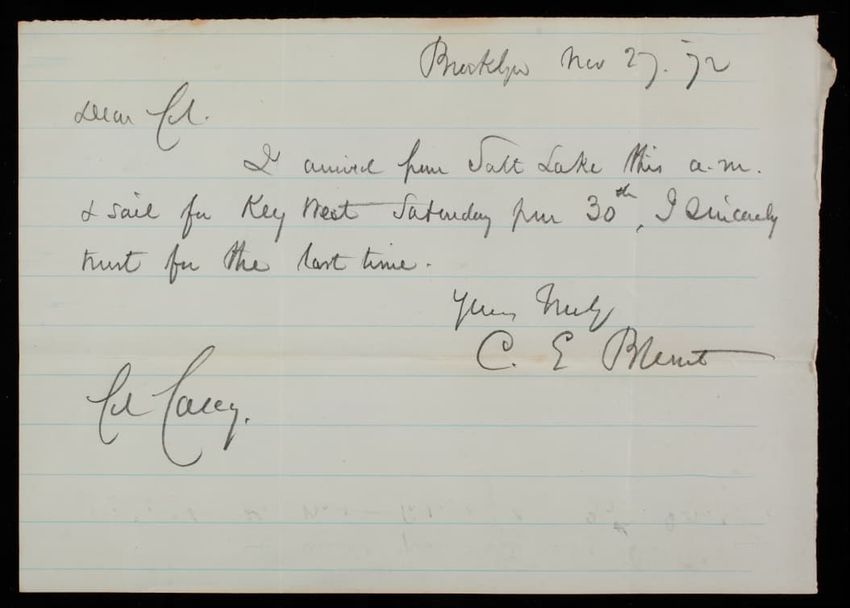 Brooklyn Nov 27. '72
Dear Col.
I arrived from Salt Lake this a.m.
& sail for Key West Saturday 30th, I sincerely
trust for the last time.
Yours truly
C. E. Blunt
Col Casey.